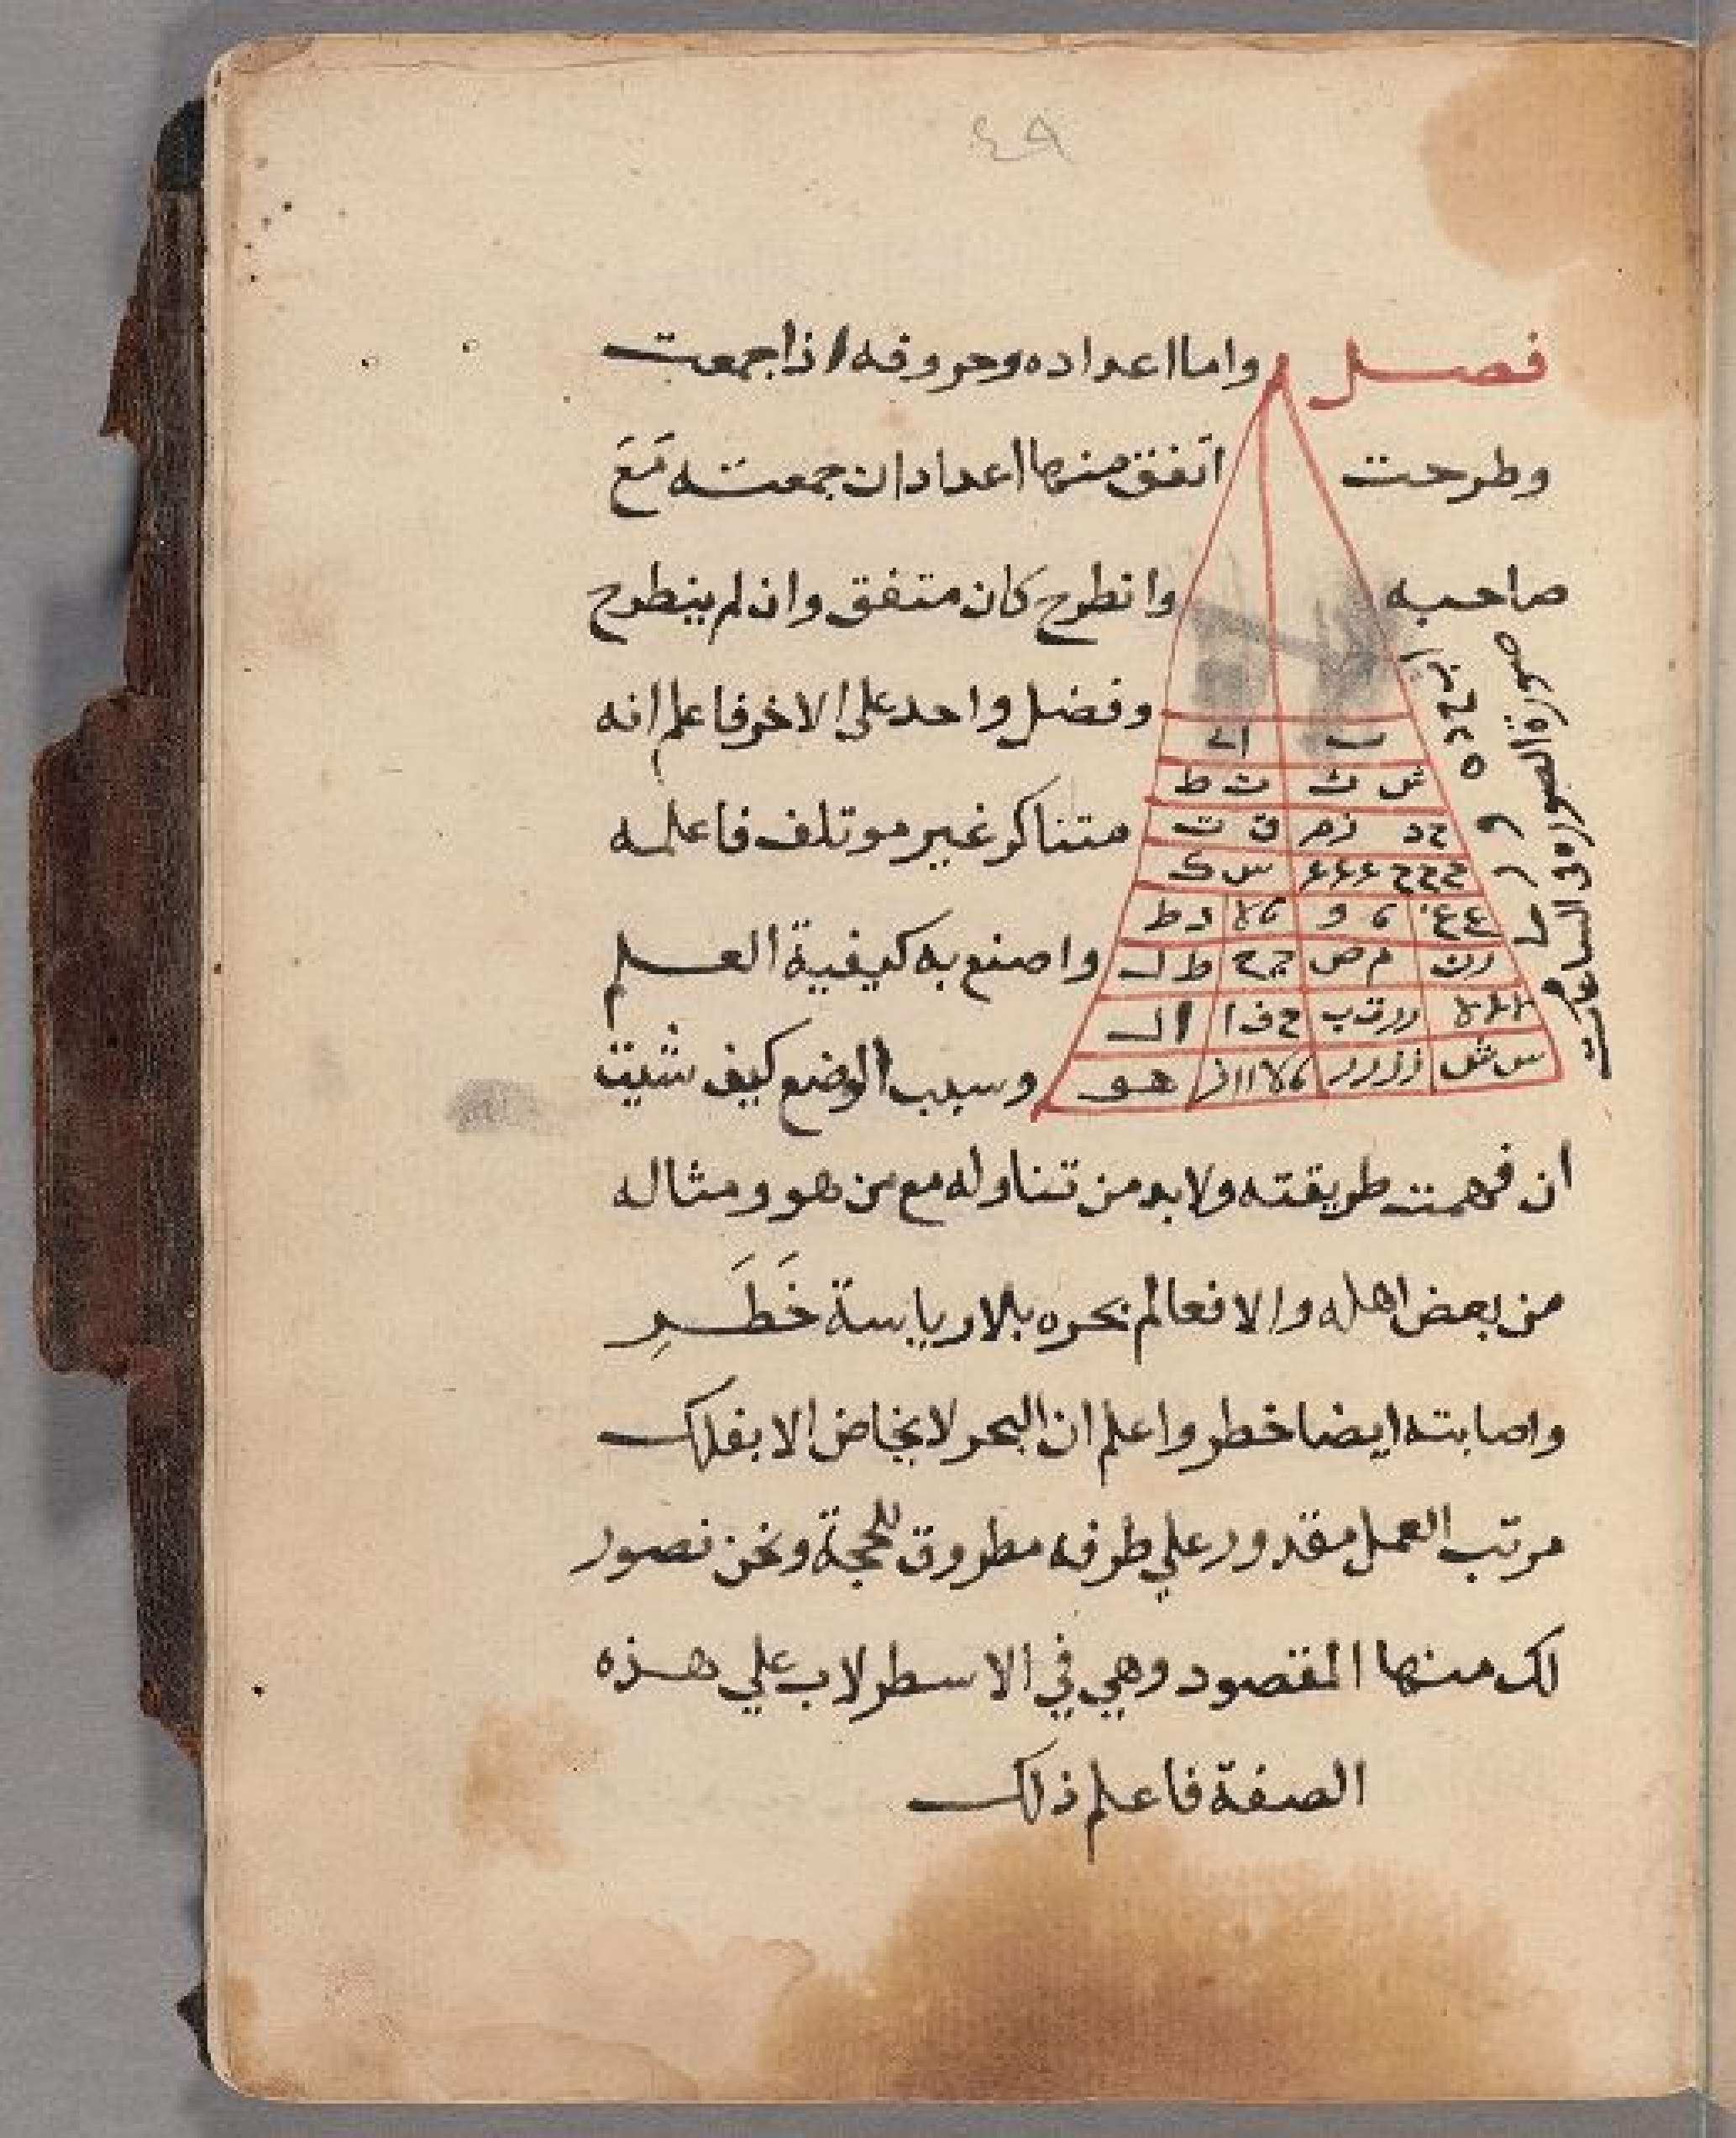 ٤٩
فصل واما اعداده وحروفه اذا جمعت
وطرحت اتفق منها اعداد ان جمعته مَعَ
صاحبه وانطرح كان متفق وان لم ينطرح
وفضل واحد على الاخر فاعلم انه
متناكر غير موتلف فاعلمه
واصنع به كيفية العلم
وسبب الوضع كيف شيت
ان فهمت طريقته ولابد من تناوله مع من هو ومثاله
من بعض اهله والافعالم بحره بلا رياسة خَطَرِ
واصابته ايضا خطر واعلم ان البحر لا يخاض الا بفلك
مرتب العمل مقدور علي طرفه مطروق للحجة ونحن نصور
لك منها المقصود وهي في الاسطرلاب علي هذه
الصفة فاعلم ذلك
صورة
ش ث ث ط
ح د ق ت
ح ح ح ع ع ع س ك
و د ط
م ص ط ل
ح ف ا ال
س ش هو